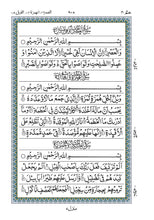 بِسْمِ اللهِ الرَّحْمٰنِ الرَّحِيْمِ
وَالْعَصْرِ اِنَّ الْاِنْسَانَ لَفِيْ خُسْرٍ اِلَّا الَّذِيْنَ اٰمَنُوْا وَ
عَمِلُوا الصّٰلِحٰتِ وَتَوَاصَوْا بِالْحَقِّ وَتَوَاصَوْا بِالصَّبْرِ
بِسْمِ اللهِ الرَّحْمٰنِ الرَّحِيْمِ
وَيْلٌ لِّكُلِّ هُمَزَةٍ لُّمَزَةٍ الَّذِيْ جَمَعَ مَالًا وَّعَدَّدَهٗ
يَحْسَبُ اَنَّ مَالَهٗٓ اَخْلَدَهٗ كَلَّا لَيُنْبَذَنَّ فِي الْحُطَمَةِ وَمَآ
اَدْرٰىكَ مَا الْحُطَمَةُ نَارُ اللهِ الْمُوْقَدَةُ الَّتِيْ تَطَّلِعُ عَلَى
الْاَفْئِدَةِ اِنَّهَا عَلَيْهِمْ مُّؤْصَدَةٌ فِيْ عَمَدٍ مُّمَدَّدَةٍ
بِسْمِ اللهِ الرَّحْمٰنِ الرَّحِيْمِ
اَلَمْ تَرَ كَيْفَ فَعَلَ رَبُّكَ بِاَصْحٰبِ الْفِيْلِ اَلَمْ يَجْعَلْ
كَيْدَهُمْ فِيْ تَضْلِيْلٍ وَّاَرْسَلَ عَلَيْهِمْ طَيْرًا اَبَابِيْلَ
تَرْمِيْهِمْ بِحِجَارَةٍ مِّنْ سِجِّيْلٍ فَجَعَلَهُمْ كَعَصْفٍ مَّأْكُوْلٍ